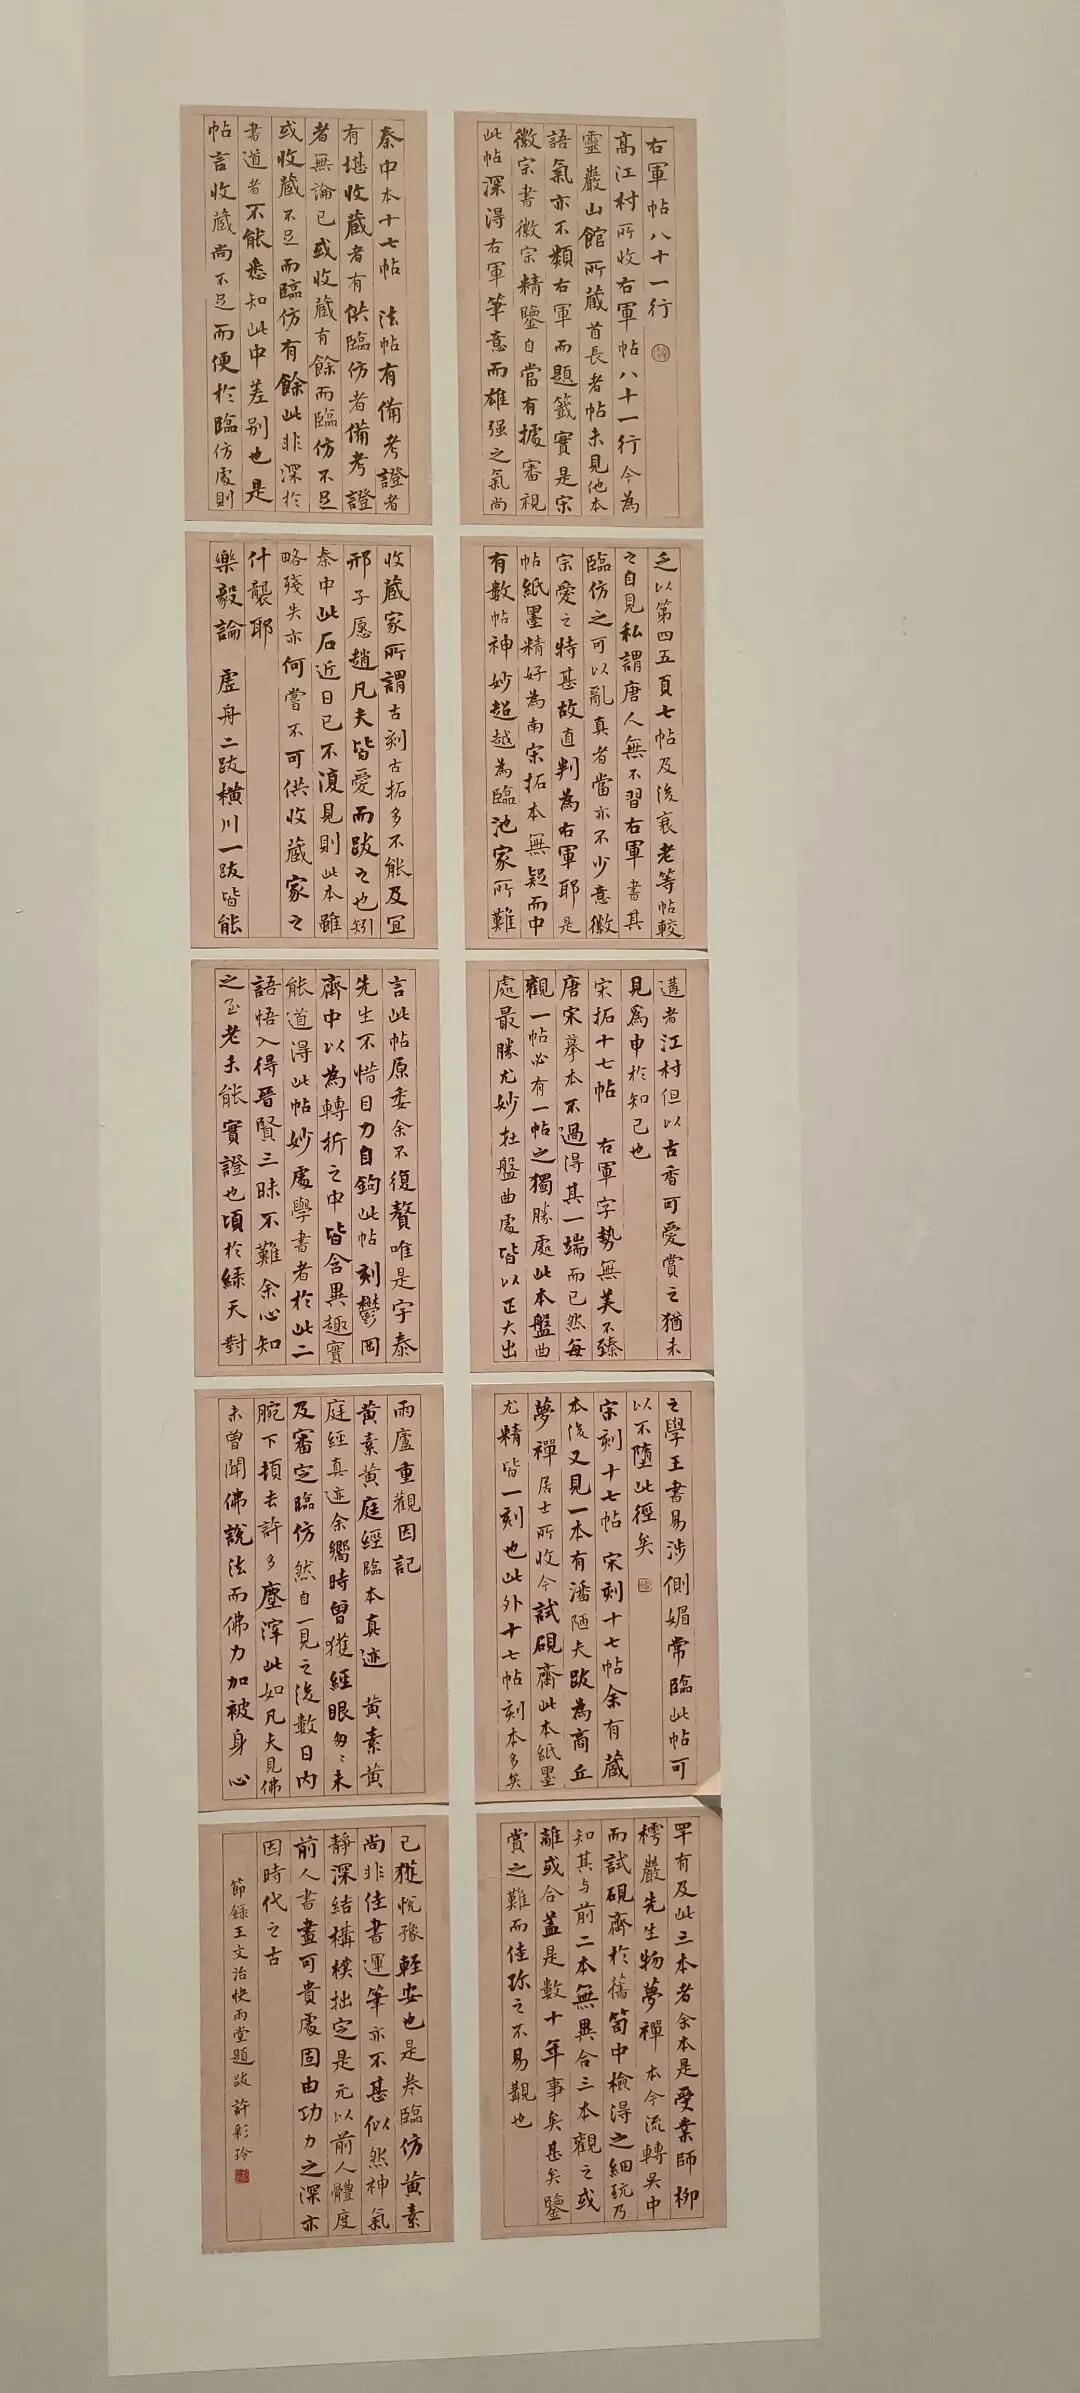 右軍帖八十一行
高江村所收右軍帖八十一行今為
靈巖山館所藏首長者帖未見他本
語氣亦不類右軍而題籤實是宋
徽宗書徽宗精鑒自當有據審視
此帖深得右軍筆意而雄强之氣尚
乏以第四五頁七帖及後衰老等帖較
之自見私謂唐人無不習右軍書其
臨仿之可以亂真者當亦不少意徽
宗愛之特甚故直判為右軍耶是
帖紙墨精好為南宋拓本無疑而中
有數帖神妙超越為臨池家所難
遘者江村但以古香可愛賞之猶未
見為申於知己也
宋拓十七帖 右軍字勢無美不臻
唐宋摹本不過得其一端而已然每
觀一帖必有一帖之獨勝處此本盤曲
處最勝尤妙在盤曲處皆以正大出
之學王書易涉側媚常臨此帖可
以不墮此徑矣
宋刻十七帖 宋刻十七帖余有藏
本後又見一本有潘陋夫跋為商丘
夢禪居士所收今試硯齋此本紙墨
尤精皆一刻也此外十七帖刻本多矣
罕有及此三本者余本是受業師柳
樗巖先生物夢禪本今流轉吳中
而試硯齋於舊笥中檢得之細玩乃
知其与前二本無異合三本觀之或
離或合蓋是數十年事矣甚矣鑒
賞之難而佳珎之不易覯也
秦中本十七帖 法帖有備考證者
有堪收藏者有供臨仿者備考證
者無論已或收藏有餘而臨仿不足
或收藏不足而臨仿有餘此非深於
書道者不能悉知此中差别也是
帖言收藏尚不足而便於臨仿處則
收藏家所謂古刻古拓多不能及宜
邢子愿趙凡夫皆愛而跋之也矧
秦中此石近日已不復見則此本雖
略殘失亦何嘗不可供收藏家之
什襲耶
樂毅論 虛舟二跋橫川一跋皆能
言此帖原委余不復贅唯是宇泰
先生不惜目力自鉤此帖刻鬱岡
齋中以為轉折之中皆含異趣實
能道得此帖妙處學書者於此二
語悟入得晉賢三昧不難余心知
之至老未能實證也頃於緑天對
雨廬重觀因記
黄素黄庭經臨本真迹 黄素黄
庭經真迹余嚮時曾獲經眼匆匆未
及審定臨仿然自一見之後數日内
腕下頓去許多塵滓此如凡夫見佛
未曾聞佛說法而佛力加被身心
已獲悅豫輕安也是卷臨仿黄素
尚非佳書運筆亦不甚似然神氣
靜深結構樸拙定是元以前人體度
前人書畫可貴處固由功力之深亦
因時代之古
節録王文治快雨堂題跋 許彩玲